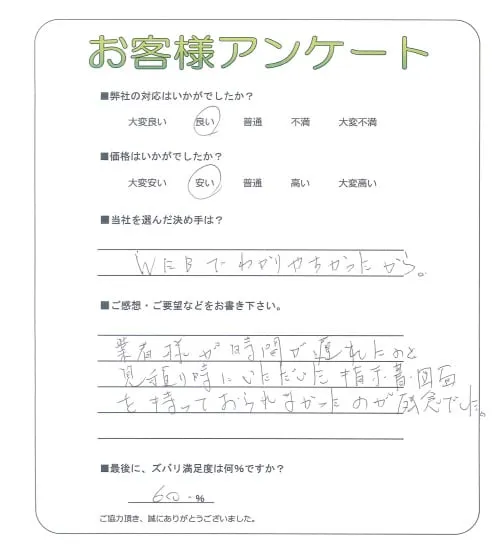 お客様アンケート
■弊社の対応はいかがでしたか？
大変良い 良い 普通 不満 大変不満
■価格はいかがでしたか？
大変安い 安い 普通 高い 大変高い
■当社を選んだ決め手は？
WEBでわかりやすかったから。
■ご感想・ご要望などをお書き下さい。
業者様が時間が遅れたのと
見積り時にいただいた指示書・図面
を持っておられまかったのが残念でした。
■最後に、ズバリ満足度は何%ですか？
60 %
ご協力頂き、誠にありがとうございました。